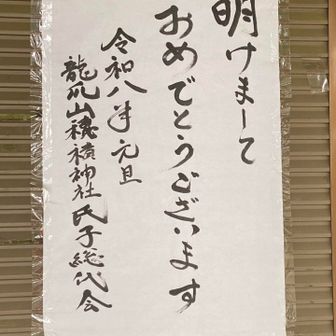 明けまして
おめでとうございます
令和八年元旦
龍爪山穂積神社氏子総代会